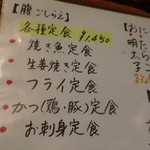 【腹ごしらえ】
各種定食 ¥1,450
焼き魚定食
生姜焼き定食
フライ定食
かつ(鶏・豚)定食
お刺身定食
【おに
明太子